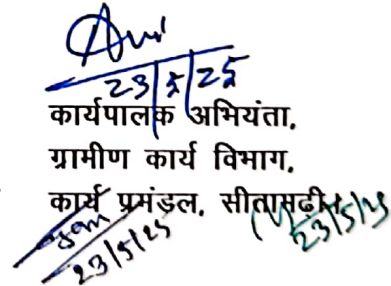 23/5/25
कार्यपालक अभियंता,
ग्रामीण कार्य विभाग,
कार्य प्रमंडल, सीतामढ़ी।
23/5/25
23/5/25